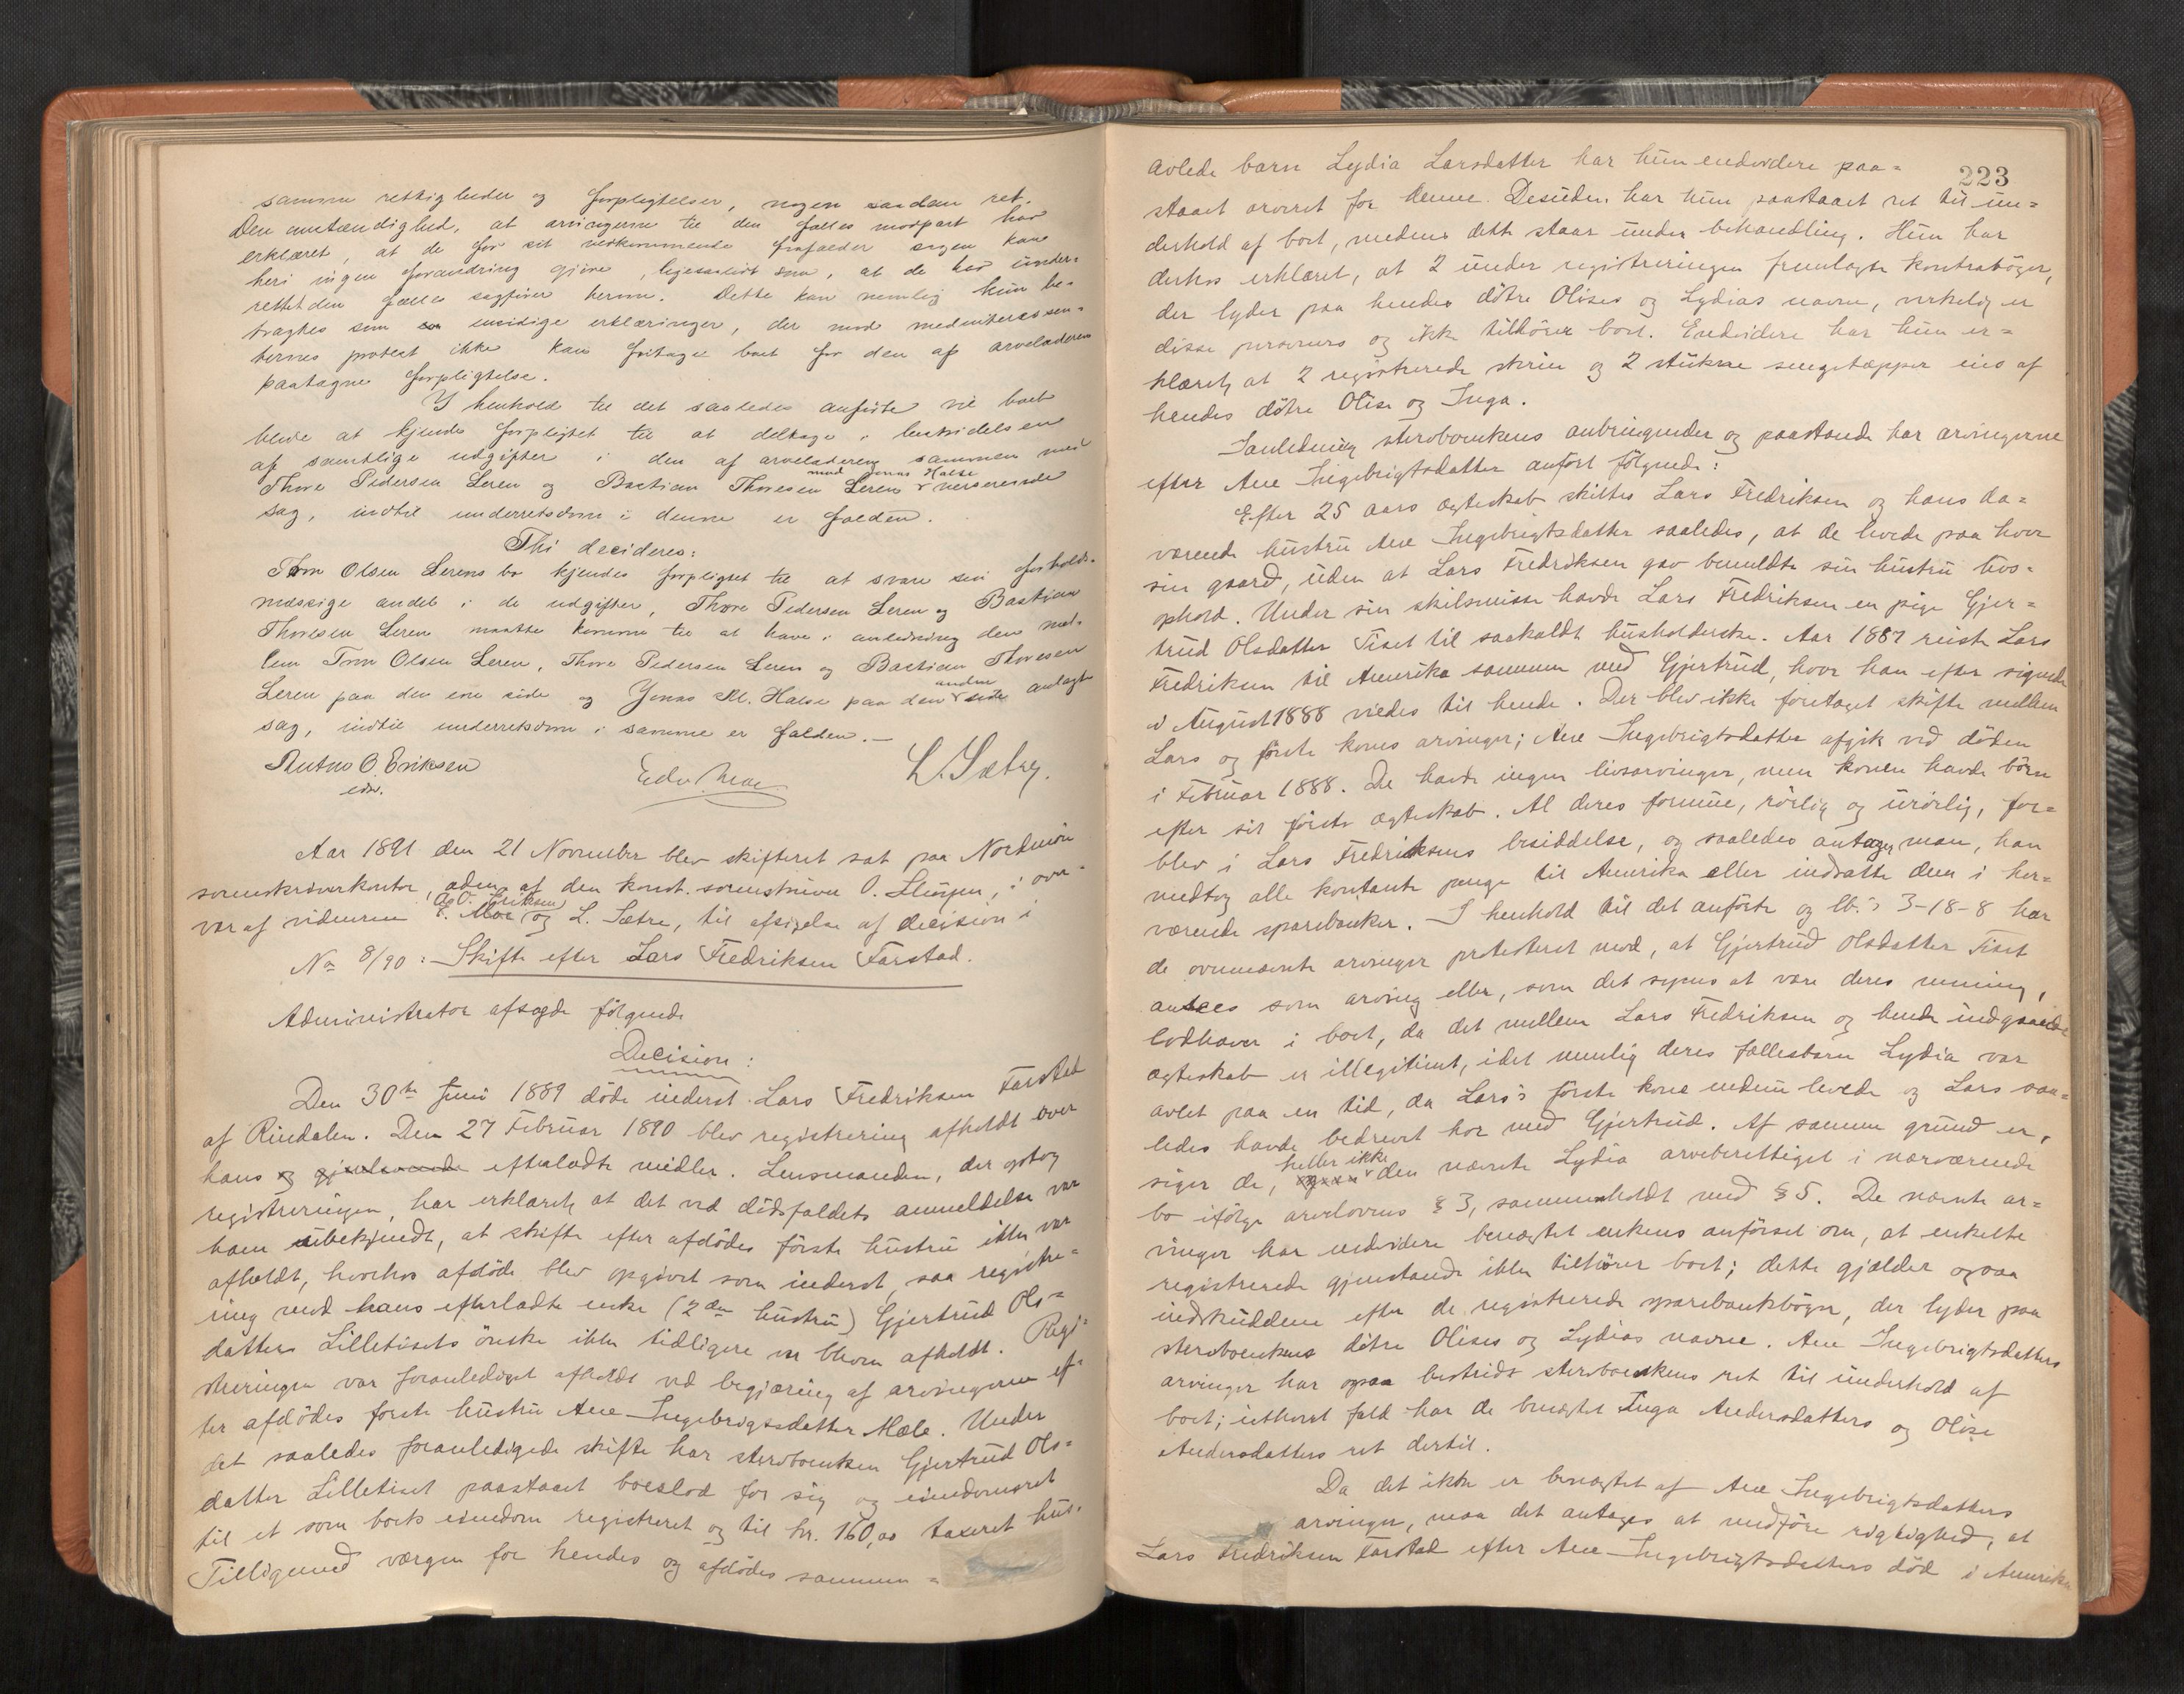 samme rettigheder og forpligtelser, nogen saadan ret.
Den omstændighed, at arvingerne til den fælles modpart har
erklæret, at de for sit vedkommende frafalder sagen kan
heri ingen forandring gjøre, ligesaalidt som, at de har under-
rettet den fælles sagfører herom. Dette kan nemlig kun be-
tragtes som ensidige erklæringer, der mod medinteressen-
ternes protest ikke kan fritage boet for den af arveladeren
paatagne forpligtelse.
I henhold til det saaledes anførte vil boet
blive at kjende forpligtet til at deltage i bestridelsen
af samtlige udgifter i den af arveladeren sammen med
Thore Pedersen Leren og Bastian Thoresen Leren mod Jonas Halse verserende
sag, indtil underretsdom i denne er falden.
Thi decideres:
Tron Olsen Lerens bo kjendes forpligtet til at svare sin forholds-
mæssige andel i de udgifter, Thore Pedersen Leren og Bastian
Thoresen Leren maatte komme til at have i anledning den mel-
lem Tron Olsen Leren, Thore Pedersen Leren og Bastian Thoresen
Leren paa den ene side og Jonas Kl. Halse paa den anden side anlagte
sag, indtil underretsdom i samme er falden.—
O. Eriksen
Edv. Moe
L. Sætre.
Aar 1891 den 21 November blev skifteret sat paa Nordmør
sorenskriverkontor, aden af den konst. sorenskriver O. , i over-
vær af vidnerne E. Moe O. Eriksen og L. Sætre, til afsigelse af decision i
No 8/90: Skifte efter Lars Fredriksen Farstad.
Administrator afsagde følgende
Decision:
Den 30te Juni 1889 døde inderst Lars Fredriksen Farstad
af Rindalen. Den 27 Februar 1890 blev registrering afholdt over
hans og gjenlevende efterladte midler. Lensmanden, der optog
registreringen, har erklæret, at det ved dødsfaldets anmeldelse var
ham ubekjendt, at skifte efter afdødes første hustru ikke var
afholdt, hvorhos afdøde blev opgivet som inderst, saa registre-
ring mod hans efterladte enke (2den hustru) Gjertrud Ols-
datters Lilletisets ønske ikke tidligere var bleven afholdt. Regi-
streringen var foranlediget afholdt ved begjæring af arvingerne ef-
ter afdødes første hustru Ane Ingebrigtsdatter Mæle. Under
det saaledes foranledigede skifte har stervboenken Gjertrud Ols-
datter Lilletiset paastaaet boeslod for sig og eiendomsret
til et som boets eiendom registreret og til kr. 160,00 taxeret hus.
Tilligemed værgen for hendes og afdødes sammen-
223
avlede barn Lydia Larsdatter har hun endvidere paa-
staaet arveret for denne. Desuden har hun paastaaet ret til un-
derhold af boet, medens dette staar under behandling. Hun har
derhos erklæret, at 2 under registreringen fremlagte kontrabøger,
der lyder paa hendes døtre Olises og Lydias navne, virkelig er
disse personers og ikke tilhører boet. Endvidere har hun er-
klæret, at 2 registrerede skrin og 2 stukne sengetæpper eies af
hendes døtre Olise og Inga.
I anledning stervboenkens anbringender og paastande har arvingerne
efter Ane Ingebrigtsdatter anført følgende:
Efter 25 aars ægteskab skiltes Lars Fredriksen og hans da-
værende hustru Ane Ingebrigtsdatter saaledes, at de levede paa hver
sin gaard, uden at Lars Fredriksen gav bemeldte sin hustru livs-
ophold. Under sin skilsmisse havde Lars Fredriksen en pige Gjer-
trud Olsdatter Tiset til saakaldt husholderske. Aar 1887 reiste Lars
Fredriksen til Amerika sammen med Gjertrud, hvor han efter sigende
i August 1888 viedes til hende. Der blev ikke foretaget skifte mellem
Lars og første kones arvinger; Ane Ingebrigtsdatter afgik ved døden
i Februar 1888. De havde ingen livsarvinger, men konen havde børn
efter sit første ægteskab. Al deres formue, rørlig og urørlig, for-
blev i Lars Fredriksens besiddelse, og saaledes antager man, han
medtog alle kontante penge til Amerika eller indsatte dem i her-
værende sparebanker. I henhold til det anførte og lb.'s 3-18-8 har
de ovennævnte arvinger protesteret mod, at Gjertrud Olsdatter Tiset
ansees som arving eller, som det synes at være deres mening,
lodhaver i boet, da det mellem Lars Fredriksen og hende indgaaede
ægteskab er illegitimt, idet nemlig deres fællesbarn Lydia var
avlet paa en tid, da Lars's første kone endnu levede og Lars saa-
ledes havde bedrevet hor med Gjertrud. Af samme grund er,
siger de, heller ikke den nævnte Lydia arveberettiget i nærværende
bo ifølge arvelovens § 3, sammenholdt med § 5. De nævnte ar-
vinger har endvidere benægtet enkens anførsel om, at enkelte
registrerede gjenstande ikke tilhører boet; dette gjælder ogsaa
indskuddene efter de registrerede sparebankbøger, der lyder paa
stervboenkens døtre Olises og Lydias navne. Ane Ingebrigtsdatters
arvinger har ogsaa bestridt stervboenkens ret til underhold af
boet; iethvert fald har de benægtet Inga Andersdatters og Olise
Andersdatters ret dertil.
Da det ikke er benægtet af Ane Ingebrigtsdatters
arvinger, maa det antages at medføre rigtighed, at
Lars Fredriksen Farstad efter Ane Ingebrigtsdatters død i Amerika